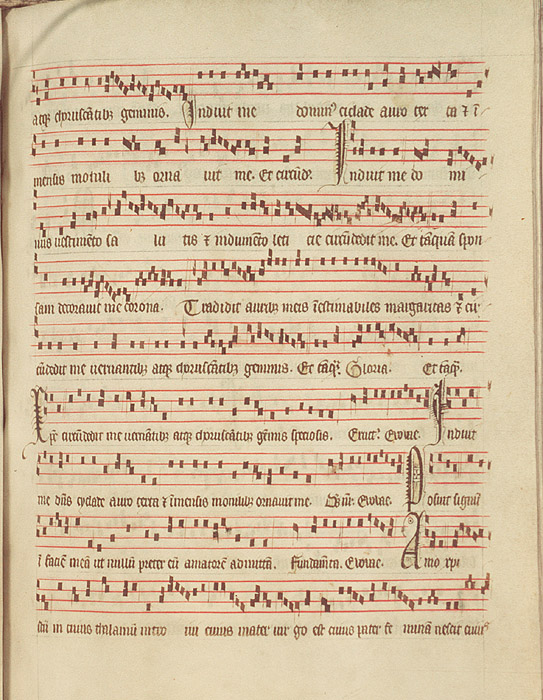 atqꝫ choruscātibꝫ gemmis. Induit me dominꝰ ciclade auro tex ta ⁊ ī
mensis monili bꝫ orna uit me. Et circūdꝫ. Induit me do mi
nus uestimēto sa lu tis ⁊ indumēto leti cie circūdedit me. Et tāquā spon
sam decorauit me corona. Tradidit auribꝫ meis īestimabiles margaritas ⁊ cir
cūdedit me uernantibꝫ atqꝫ choruscātibꝫ gemmis. Et tāqꝫ. Gloria. Et tāqꝫ.
Xp̄c circūdedit me uernātibꝫ atqꝫ choruscātibꝫ gēmis speciosis. Euouae. Induit
me dn̄s ciclade auro texta ⁊ īmensis monilibꝫ ornauit me. Euouae. Posuit signū
ī faciē meā ut nullū preter eū amatorē admittā. Fundamēta. Euouae. Amo xp̄i
stū in cuius thalamū intro iui cuius mater uir go est cuius pater fe minā nescit cuiꝰ